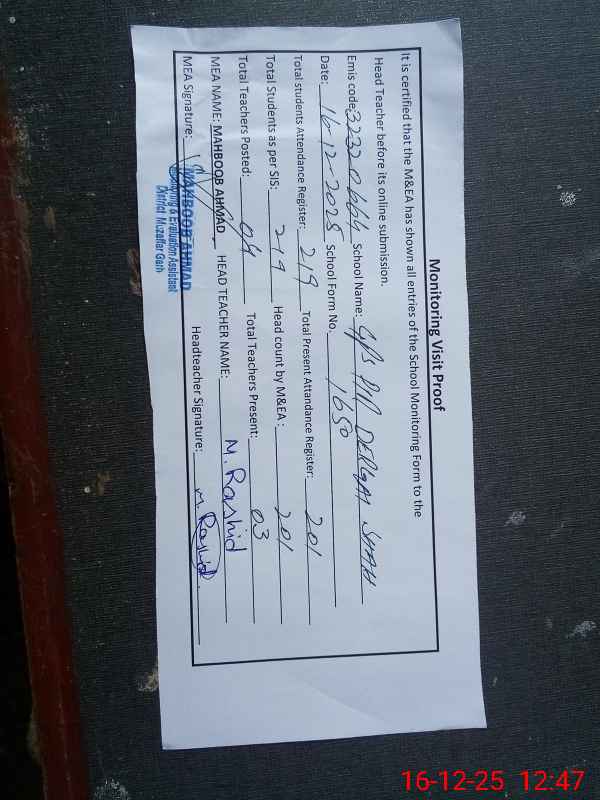 Monitoring Visit Proof
It is certified that the M&EA has shown all entries of the School Monitoring Form to the
Head Teacher before its online submission.
Emis code: 32320664 School Name: G/S PIR DERGAI SHAH
Date: 16-12-2025 School Form No. 1650
Total students Attendance Register: 219 Total Present Attandance Register: 201
Total Students as per SIS: 219 Head count by M&EA : 201
Total Teachers Posted: 04 Total Teachers Present: 03
MEA NAME: MAHBOOB AHMAD HEAD TEACHER NAME: M. Rashid
MEA Signature: Headteacher Signature: M. Rashid
MAHBOOB AHMAD
Monitoring & Evaluation Assistant
District Muzaffar Garh
16-12-25 12:47